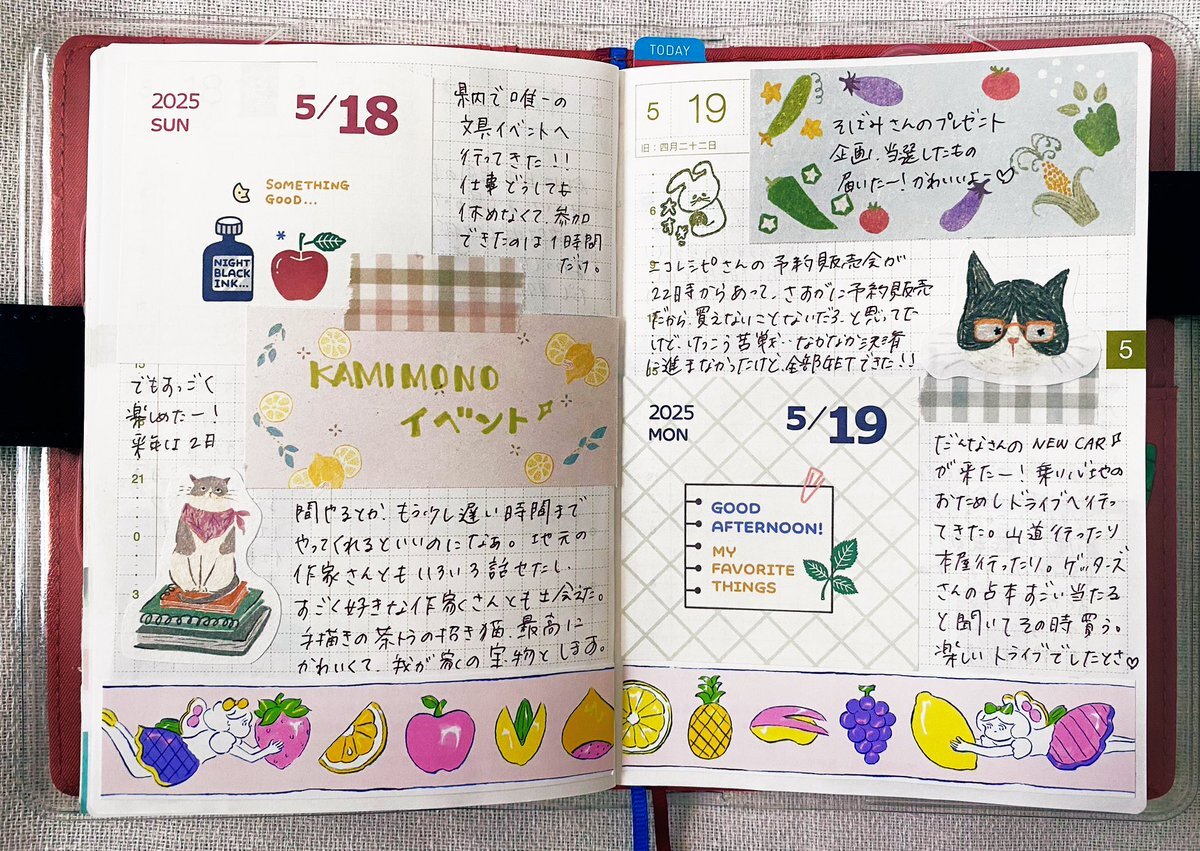 2025
SUN
5/18
県内で唯一の
文具イベントへ
行ってきた!!
仕事どうしても
休めなくて、参加
できたのは1時間
だけ。
SOMETHING
GOOD...
NIGHT
BLACK
INK...
KAMIMONO
イベント
でもすっごく
楽しめたー!
来年は2日
21
0
3
間やるとか、もう少し遅い時間まで
やってくれるといいのになぁ。地元の
作家さんともいろいろ話せたし、
すごく好きな作家さんとも出会えた。
手描きの茶トラの招き猫、最高に
かわいくて、我が家の宝物とします。
TODAY
5 19
旧:四月二十二日
6
そばみさんのプレゼント
企画、当選したもの
届いたー!かわいいよー♡
エコレシピさんの予約販売会が
22日寺からあって、さすがに予約販売
だから、買えないことないだろ、と思ってた
けど、けっこう苦戦…なかなか決済
は進まなかったけど、全部GETできた!!
5
2025
MON
5/19
GOOD
AFTERNOON!
MY
FAVORITE
THINGS
だんなさんの NEW CAR
が来たー!乗り心地の
おためしドライブへ行っ
てきた。山道行ったり
本屋行ったり。ゲッターズ
さんの占本すごい当たる
と聞いてその時買う。
楽しいドライブでしたとさ♡